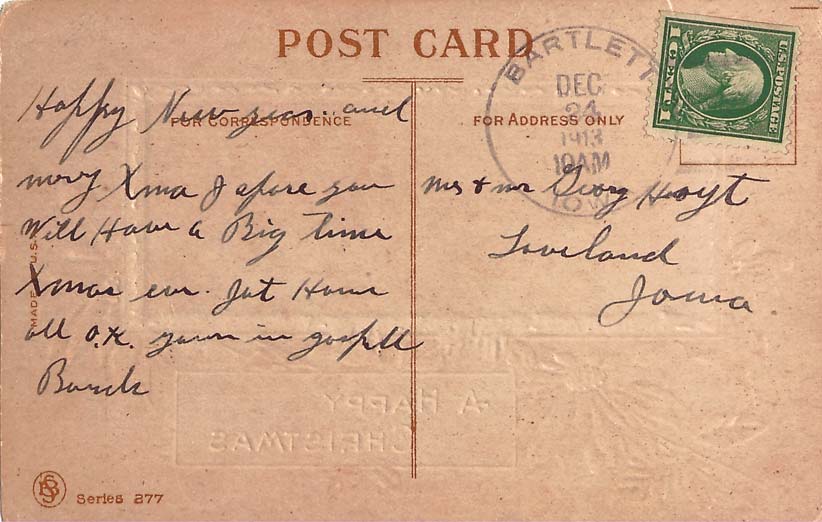 POST CARD
BARTLETT
DEC
24
1913
10 AM
IOWA
1 CENT 1
U.S. POSTAGE
FOR CORRESPONDENCE
FOR ADDRESS ONLY
Happy New year and
mery Xma I spose you
Will Have a Big time
Xmas eve. Jat Home
all O.K. yours in
MADE IN U.S.A.
Mrs & mr Georg Hoyt
Loveland
Iowa
A HAPPY
CHRISTMAS
Series 277